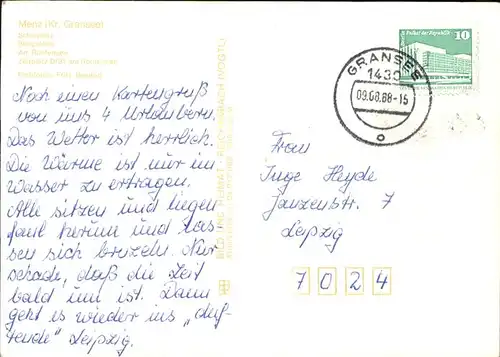 Menz (Kr. Gransee)
Noch einen Kartengruß
von uns 4 Urlaubern.
Das Wetter ist herrlich.
Die Wärme ist nur im
Wasser zu ertragen.
Alle sitzen und liegen
faul herum und las
sen sich bruzeln. Nur
schade, daß die Zeit
bald um ist. Dann
geht es wieder ins „duf-
tende" Leipzig.
GRANSEE
1430
09.08.88-15
10
Frau
Inge Heyde
Janzenstr. 7
Leipzig
7024